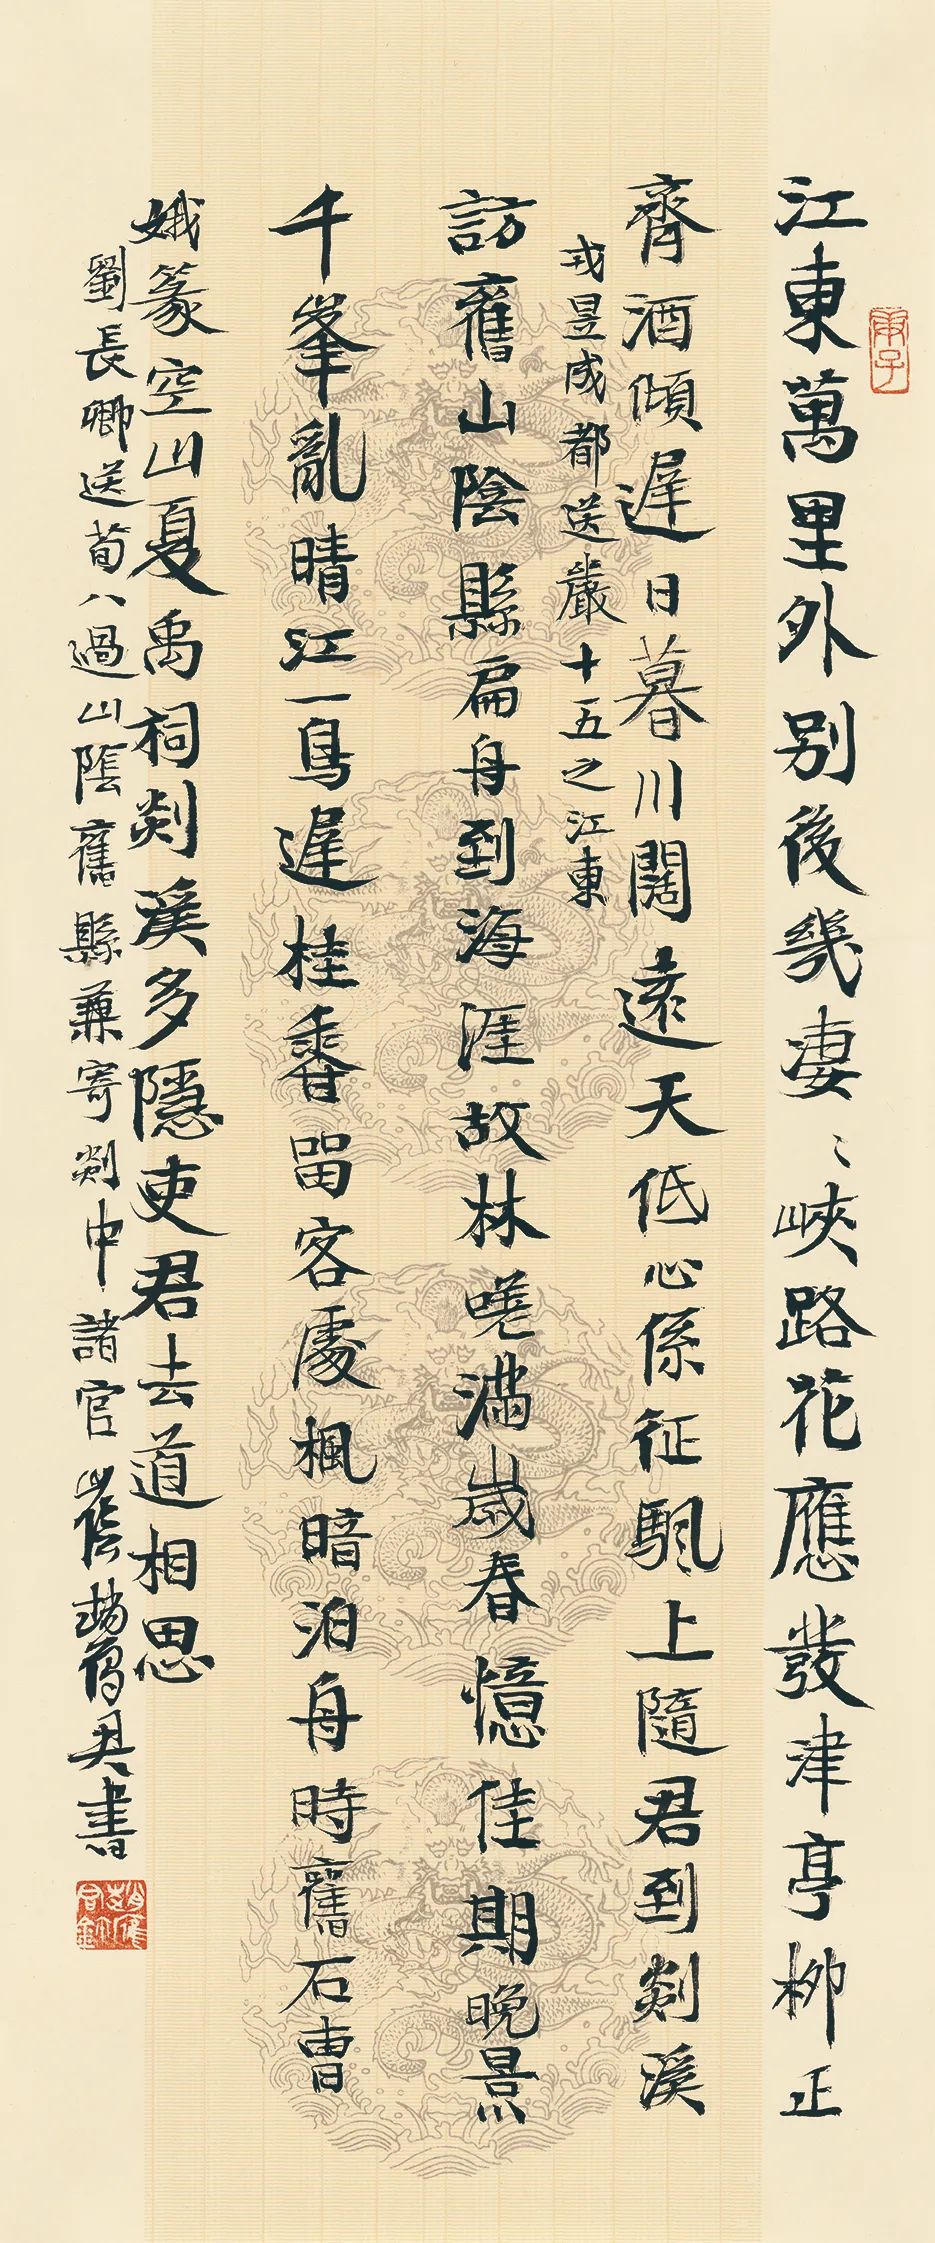 庚子
江東萬里外別後幾淒〻峽路花應發津亭柳正
齊酒傾遲日暮川闊遠天低心係征颿上隨君到剡溪
戎昱成都送嚴十五之江東
訪舊山陰縣扁舟到海涯故林嗟滿歲春憶佳期晚景
千峯亂晴江一鳥遲桂香留客處楓暗泊舟時舊石曹
娥篆空山夏禹祠剡溪多隱吏君去道相思
劉長卿送荀八過山陰舊縣兼寄剡中諸官 山陰趙雁君書